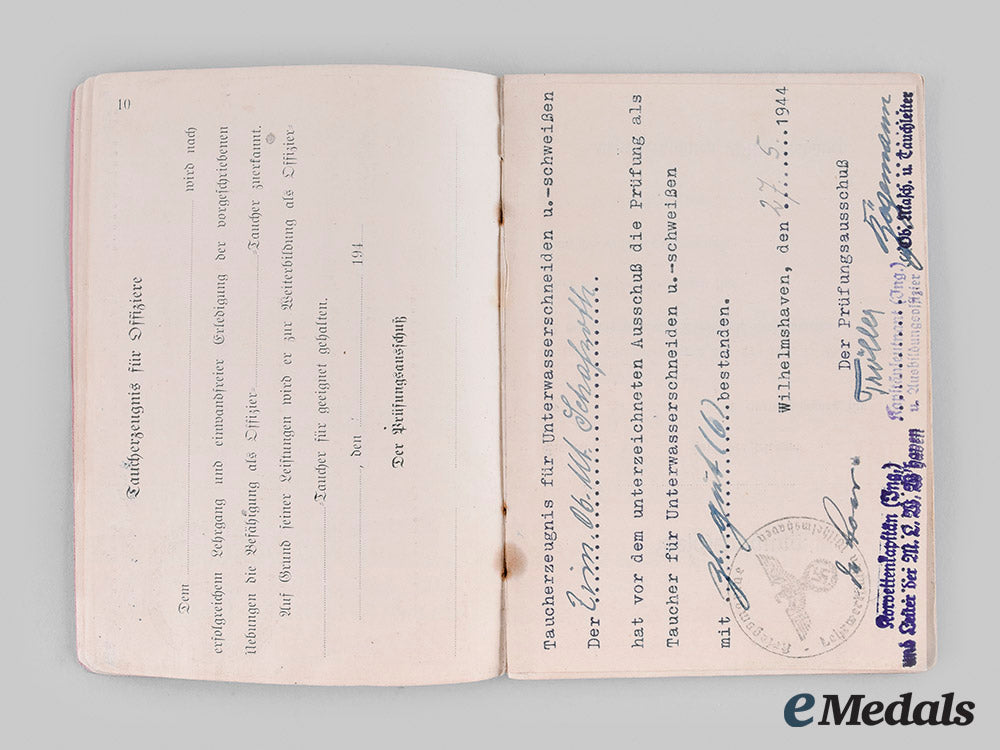 10
Taucherzeugnis für Offiziere
Dem wird nach
erfolgreichem Lehrgang und einwandfreier Erledigung der vorgeschriebenen
Uebungen die Befähigung als Offizier- Taucher zuerkannt.
Auf Grund seiner Leistungen wird er zur Weiterbildung als Offizier-
Taucher für geeignet gehalten.
, den 194
Der Prüfungsausschuß
Taucherzeugnis für Unterwasserschneiden u.-schweißen
Der Zim. Ob. Mt. Schafroth
hat vor dem unterzeichneten Ausschuß die Prüfung als
Taucher für Unterwasserschneiden u.-schweißen
mit gut (6) bestanden.
Wilhelmshaven, den 27. 5. 1944
Der Prüfungsausschuß
Tröller
Korvettenkapitän (Ing.)
und Leiter der M. L. W. W'haven
Kapitänleutnant (Ing.)
u. Ausbildungsoffizier
Ob. Masch. u. Tauchleiter
Wilhelmshaven
eMedals